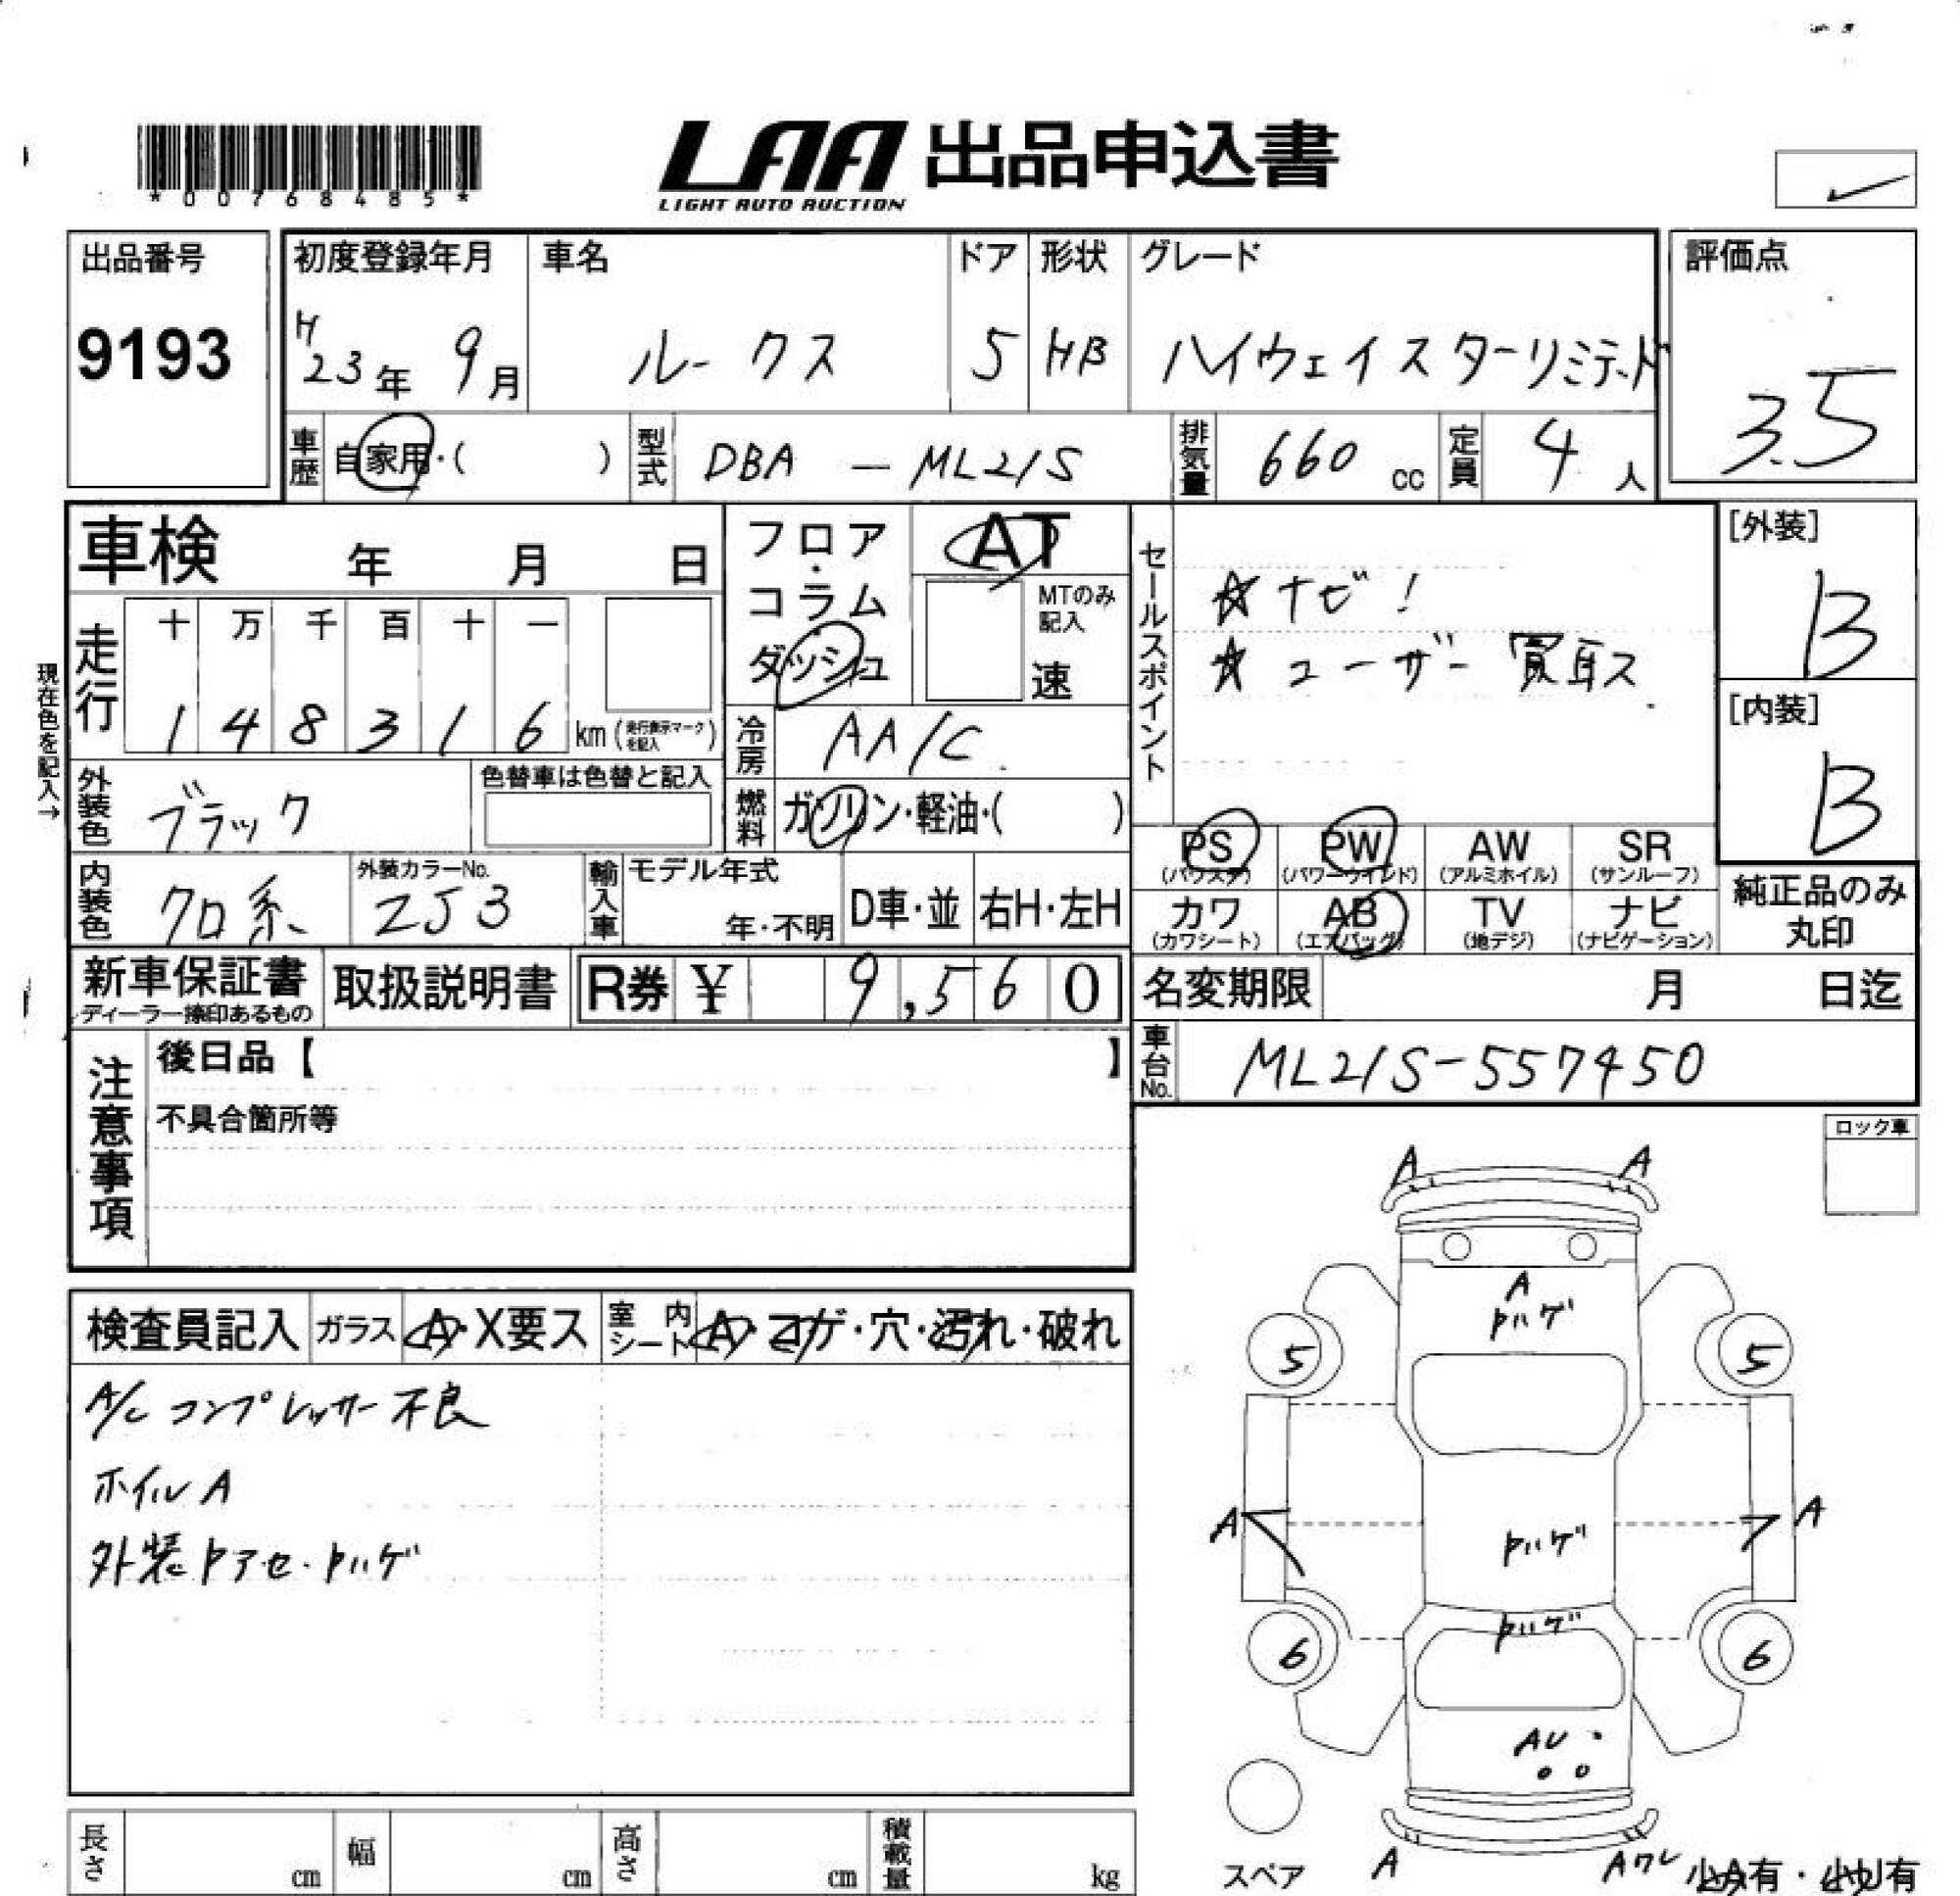 *00768485*
LAA 出品申込書
LIGHT AUTO AUCTION
出品番号
9193
初度登録年月 車名 ドア 形状 グレード
H23年 9月 ルークス 5 HB ハイウェイスターリミテッド
評価点
3.5
車歴 自家用・( ) 型式 DBA - ML21S 排気量 660 cc 定員 4 人
車検 年 月 日
フロア・コラム・ダッシュ
AT
MTのみ記入
速
セールスポイント
☆ナビ!
☆ユーザー買取ス
[外装]
B
[内装]
B
現在色を記入→
走行 十 万 千 百 十 一
1 4 8 3 1 6 km (走行表示マークを記入)
冷房 AA/C
外装色 ブラック 色替車は色替と記入
燃料 ガソリン・軽油・( )
内装色 クロ系 外装カラーNo. ZJ3
輸入車 モデル年式 年・不明 D車・並 右H・左H
PS (パワステ) PW (パワーウインド) AW (アルミホイル) SR (サンルーフ)
カワ (カワシート) AB (エアバッグ) TV (地デジ) ナビ (ナビゲーション)
純正品のみ丸印
新車保証書 ディーラー捺印あるもの 取扱説明書 R券 ¥ 9,560
名変期限 月 日迄
車台No. ML21S-557450
注意事項
後日品【 】
不具合箇所等
ロック車
検査員記入 ガラス A・X要ス 室内シート A・コゲ・穴・汚れ・破れ
A/C コンプレッサー不良
ホイルA
外装トアセ・トハゲ
A A
A
トハゲ
5 5
A A
トハゲ
トハゲ
6 6
AU
スペア A Aワレ 小A有・小U有
長さ cm 幅 cm 高さ cm 積載量 kg